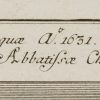 quæ Aº. 1631.
Abbatissæ Ch